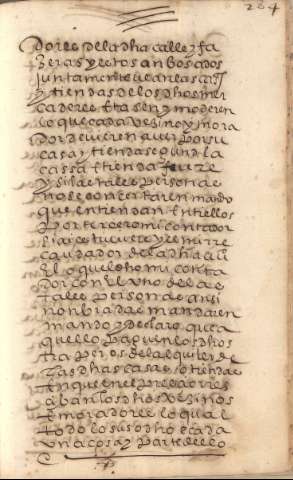 264
Dores de la dha calle y fa
zeras y estos anbos ados
juntamente vean las casas
y tiendas de los dhos mer
caderes tasen y moderen
lo que cada vezino y mora
dor deviere aver por su
casa y tienda segund la
casa e tienda fuere
y si las tales personas
no se concertaren mando
que entiendan entre ellos
por tercero mi contador
si a que tuviere y el mi rre
caudador de la dha
el o quel dho mi conta
dor con el uno de las
tales personas ansi
nonbradas mandaen
mando y declaro que a
quello paguen los dhos
traperos del alquiler de
las dhas casas o tiendas
en que
ban los dhos vezinos
e moradores lo qual
todo lo suso dho e cada
una cosa y parte dello